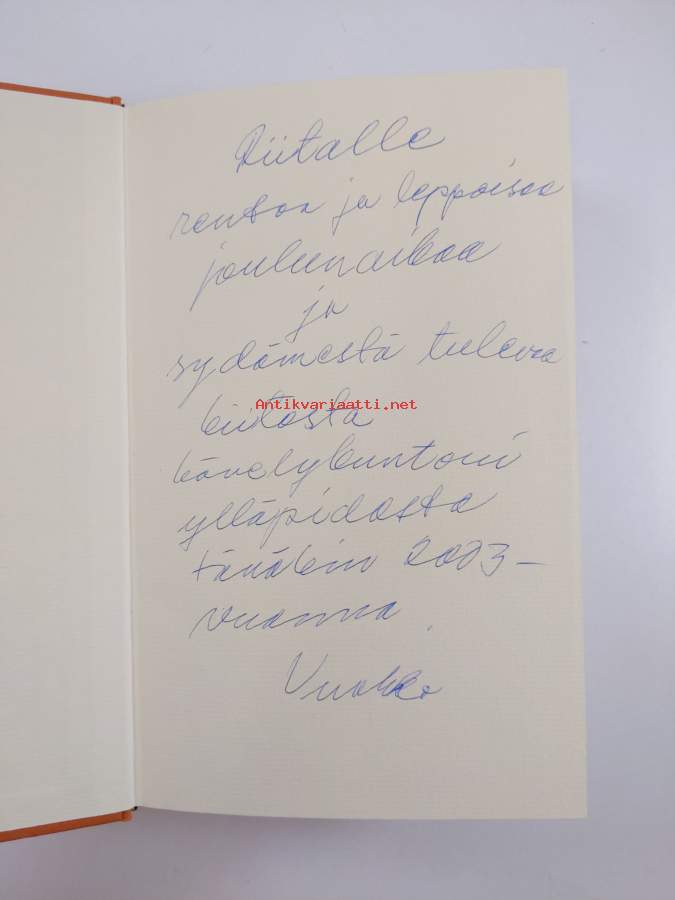 Riitalle
rentoa ja leppoisaa
joulunaikaa
ja
sydämestä tulevaa
Antikvariaatti.net
kiitosta
kävelykuntoni
ylläpidosta
tänäkin 2003-
vuonna.
Vuokko